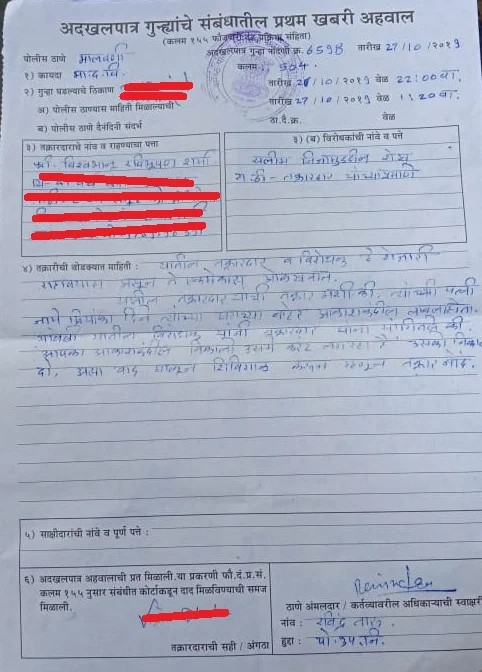 अदखलपात्र गुन्ह्यांचे संबंधातील प्रथम खबरी अहवाल
(कलम १५५ फौजदारी दंड प्रक्रिया संहिता)
पोलीस ठाणे मालवणी अदखलपात्र गुन्हा नोंदणी क्र. 659B तारीख 27/10/2019
१) कायदा भा.द.वि. कलम 504.
२) गुन्हा घडल्याचे ठिकाण तारीख /10/2019 वेळ 22:00 वा.
अ) पोलीस ठाण्यास माहिती मिळाल्याची तारीख 27/10/2019 वेळ 1:20 वा.
ब) पोलीस ठाणे दैनंदिनी संदर्भ ठा.दै.क्र. वेळ
३) तक्रारदाराचे नांव व राहण्याचा पत्ता
श्री. विश्वभानू रविभूषण शर्मा
३) (ब) विरोधकांची नांवे व पत्ते
सलीम निजामुद्दीन शेख
रा. ठी. - तक्रारदार यांच्याप्रमाणे
४) तक्रारीची थोडक्यात माहिती : यातील तक्रारदार व विरोधक हे शेजारी
राहावयास असून ते एकमेकांस ओळखतात.
यातील तक्रारदार यांची तक्रार अशी की, त्यांच्या पत्नी
नामे दिवा त्यांच्या घराच्या बाहेर आकाशकंदील लावला होता.
त्यावेळी यातील विरोधक यांनी तक्रारदार यांना सांगितले की,
आपका आकाशकंदील निकालो उसमें करंट लग रहा है उसका
दो, असा वाद घालून शिविगाळ केली म्हणून तक्रार नोंद.
५) साक्षीदारांची नांवे व पूर्ण पत्ते :
६) अदखलपात्र अहवालाची प्रत मिळाली. या प्रकरणी फौ.दं.प्र.सं.
कलम १५५ नुसार संबंधीत कोर्टाकडून दाद मिळविण्याची समज
मिळाली.
तक्रारदाराची सही / अंगठा
ठाणे अंमलदार / कर्तव्यावरील अधिकाऱ्याची स्वाक्षरी
नांव : रविंद्र
हुद्दा : पो.उप.नि.